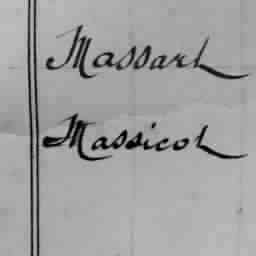 Massart
Massicot